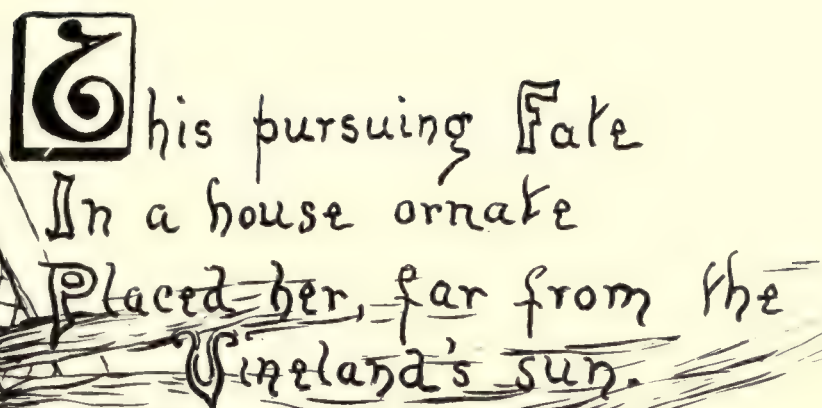 This pursuing Fate
In a house ornate
Placed her, far from the
Vineland's sun.